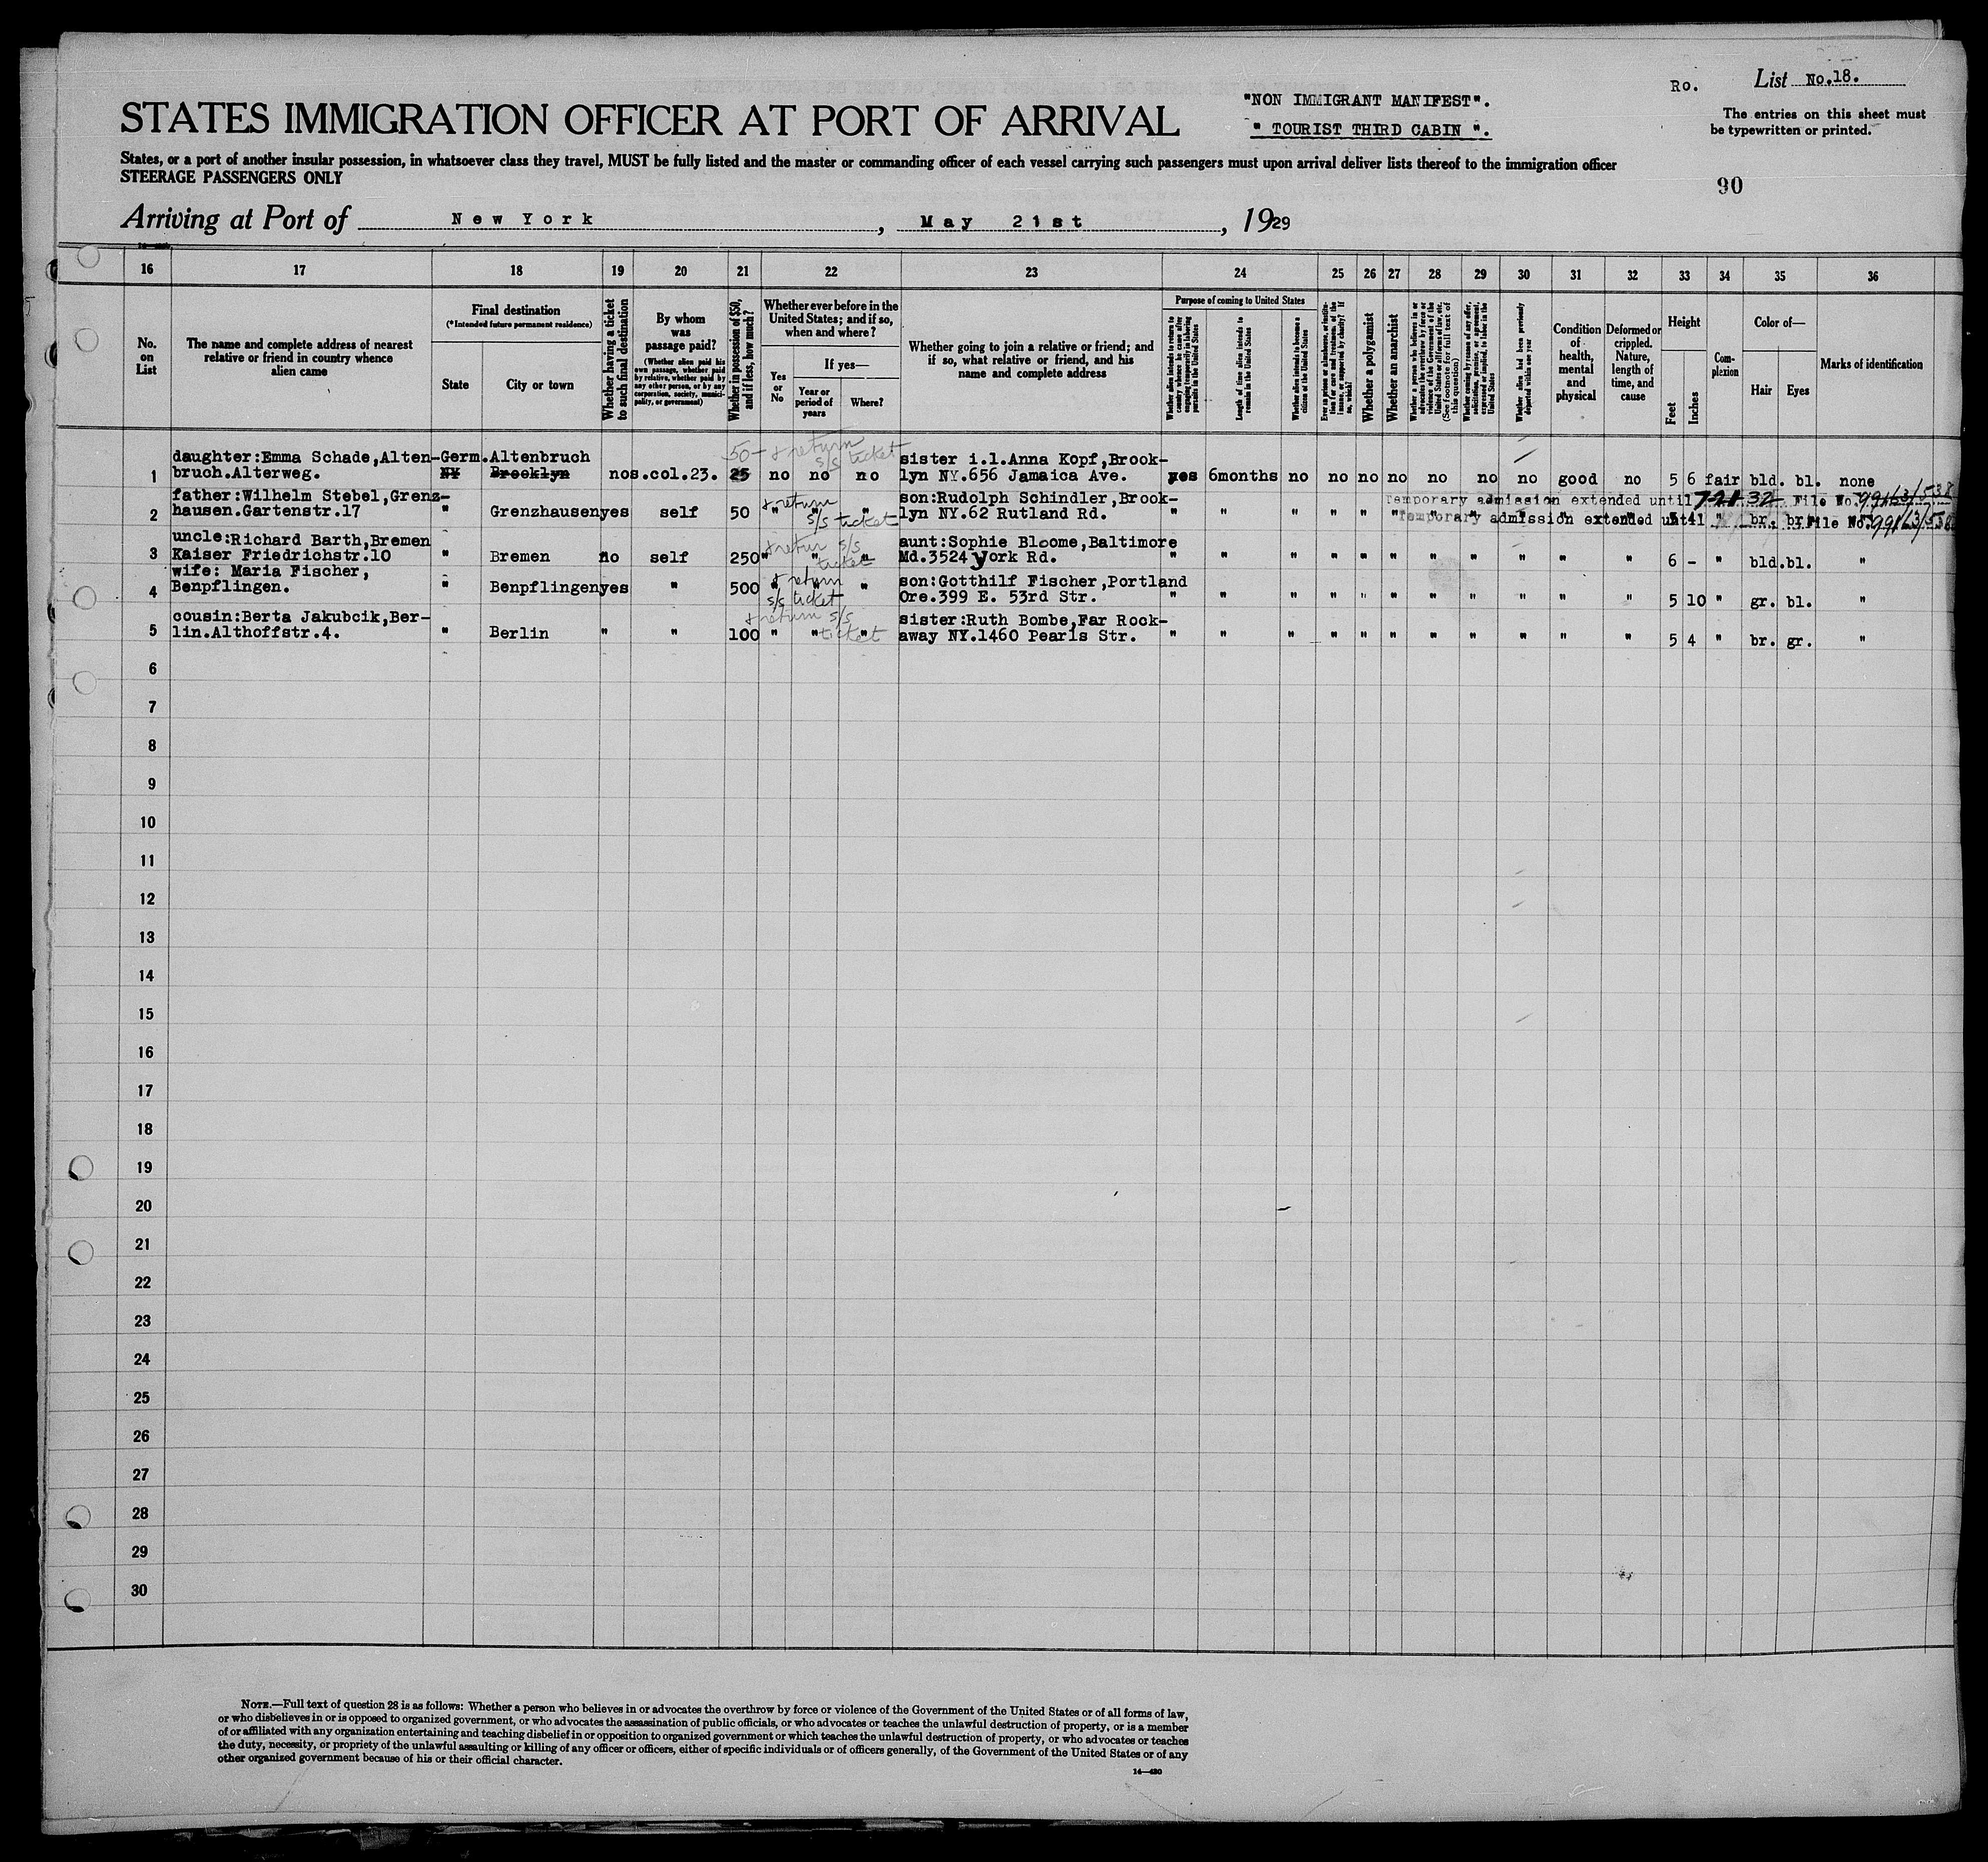 Ro. List No.18.
"NON IMMIGRANT MANIFEST".
The entries on this sheet must
be typewritten or printed.
STATES IMMIGRATION OFFICER AT PORT OF ARRIVAL
" TOURIST THIRD CABIN ".
States, or a port of another insular possession, in whatsoever class they travel, MUST be fully listed and the master or commanding officer of each vessel carrying such passengers must upon arrival deliver lists thereof to the immigration officer
STEERAGE PASSENGERS ONLY
90
Arriving at Port of New York, May 21st, 1929
16 17 18 19 20 21 22 23 24 25 26 27 28 29 30 31 32 33 34 35 36
No.
on
List
The name and complete address of nearest
relative or friend in country whence
alien came
Final destination
(*Intended future permanent residence)
State
City or town
Whether having a ticket
to such final destination
By whom
was
passage paid?
(Whether alien paid his
own passage, whether paid
by relative, whether paid by
any other person, or by any
corporation, society, munici-
pality, or government)
Whether in possession of $50,
and if less, how much?
Whether ever before in the
United States; and if so,
when and where?
Yes
or
No
If yes—
Year or
period of
years
Where?
Whether going to join a relative or friend; and
if so, what relative or friend, and his
name and complete address
Purpose of coming to United States
Whether alien intends to return to
country whence he came after
engaging temporarily in laboring
pursuits in the United States
Length of time alien intends to
remain in the United States
Whether alien intends to become a
citizen of the United States
Ever in prison or almshouse, or institu-
tion for care and treatment of the
insane, or supported by charity? If
so, which?
Whether a polygamist
Whether an anarchist
Whether a person who believes in or
advocates the overthrow by force or
violence of the Government of the
United States or all forms of law, etc.
(See footnote for full text of
this question)
Whether coming by reason of any offer,
solicitation, promise, or agreement,
expressed or implied, to labor in the
United States
Whether alien had been previously
deported within one year
Condition
of
health,
mental
and
physical
Deformed or
crippled.
Nature,
length of
time, and
cause
Height
Feet
Inches
Com-
plexion
Color of—
Hair
Eyes
Marks of identification
50- & return
s/s ticket
daughter:Emma Schade,Alten- Germ. Altenbruch sister i.l.Anna Kopf,Brook-
1 bruch.Alterweg. NY Brooklyn no s.col.23. 25 no no no lyn NY.656 Jamaica Ave. yes 6months no no no no no no no good no 5 6 fair bld. bl. none
father:Wilhelm Stebel,Grenz- & return son:Rudolph Schindler,Brook- Temporary admission extended until 7-21-32 File No. 99163/538
2 hausen.Gartenstr.17 " Grenzhausen yes self 50 " " " s/s ticket lyn NY.62 Rutland Rd. " " " " " " " " " " " " br. br.
Temporary admission extended until File No. 99163/538
uncle:Richard Barth,Bremen & retur s/s aunt:Sophie Bloome,Baltimore
3 Kaiser Friedrichstr.10 " Bremen no self 250 " " " ticket Md.3524 York Rd. " " " " " " " " " " " 6 - " bld. bl. "
wife: Maria Fischer, & return son:Gotthilf Fischer,Portland
4 Benpflingen. " Benpflingen yes " 500 " " " s/s ticket Ore.399 E. 53rd Str. " " " " " " " " " " " 5 10 " gr. bl. "
cousin:Berta Jakubcik,Ber- & return s/s sister:Ruth Bombe,Far Rock-
5 lin.Althoffstr.4. " Berlin " " 100 " " " ticket away NY.1460 Pearls Str. " " " " " " " " " " " 5 4 " br. gr. "
6
7
8
9
10
11
12
13
14
15
16
17
18
19
20
21
22
23
24
25
26
27
28
29
30
NOTE.—Full text of question 28 is as follows: Whether a person who believes in or advocates the overthrow by force or violence of the Government of the United States or of all forms of law,
or who disbelieves in or is opposed to organized government, or who advocates the assassination of public officials, or who advocates or teaches the unlawful destruction of property, or is a member
of or affiliated with any organization entertaining and teaching disbelief in or opposition to organized government or which teaches the unlawful destruction of property, or who advocates or teaches
the duty, necessity, or propriety of the unlawful assaulting or killing of any officer or officers, either of specific individuals or of officers generally, of the Government of the United States or of any
other organized government because of his or their official character.
14—430